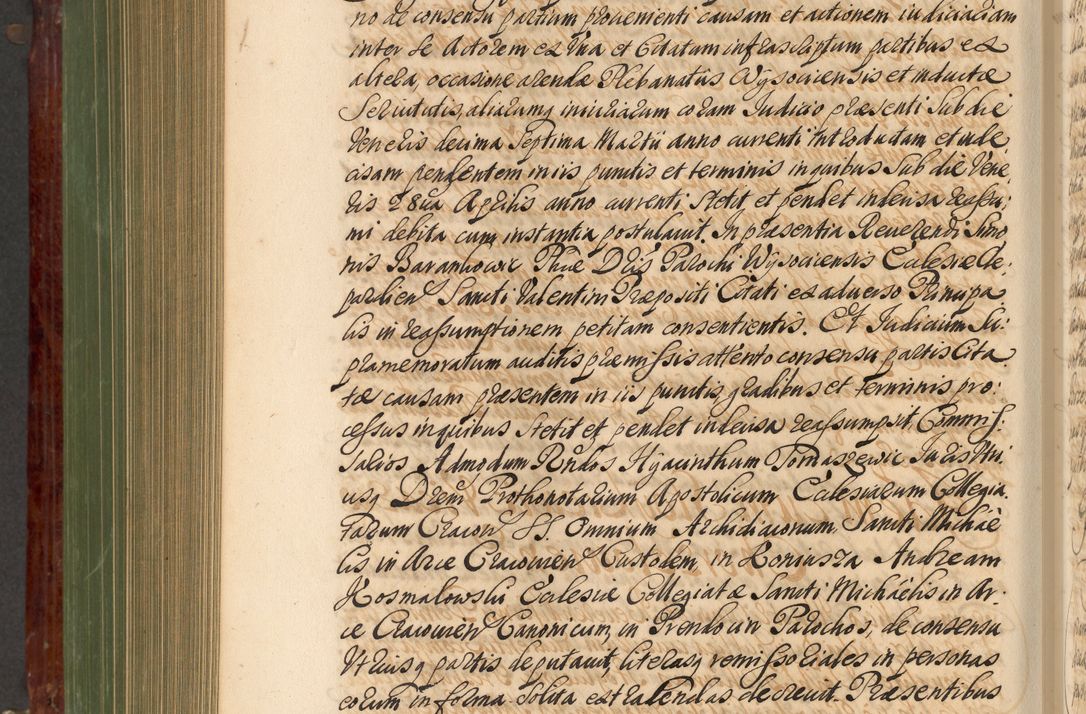 no de consensu partium provenienti causam et actionem iudiciariam
inter se Actorem ex Una et Citatum infrascriptum partibus ex
altera, occasione arendæ Plebanatus Wysociensis et inductæ
Servitutis, aliarumq iniuriarum coram Judicio præsenti sub die
Veneris decima Septima Martii anno currenti introductam et inde,
cisam pendentem in iis punctis et terminis in quibus sub die Vene
ris 28va Aprilis anno currenti stetit et pendet indecisa reassu,
mi debita cum instantia postulavit. In præsentia Reverendi Simo
nis Baranhowic Phiæ Dris Parochi Wysociensis Ecclesiæ Cle,
pardien Sancti Valentini Præpositi Citati ex adverso Principa
lis in reassumptionem petitam consentientis. Et Judicium Su:
pramemoratum auditis præmissis attento consensu partis Cita
tæ causam præsentem in iis punctis, gradibus et terminis pro:
cessus in quibus stetit et pendet indecisa reassumpsit. Commis,
sarios Admodum Rndos Hyacinthum Tomaszewic Juris Utri
usq Drem Prothonotarium Apostolicum Ecclesiarum Collegia,
tarum Cracov SS. Omnium Archidiaconum, Sancti Michaë
lis in Arce Cracovien Custodem, in Koniusza Andream
Kosmalowski Ecclesiæ Collegiatæ Sancti Michaëlis in Ar,
ce Cracovien Canonicum, in Prendocin Parochos, de consensu
Utriusq partis deputavit, literasq remissoriales in personas
eorum in forma solita extradendas decrevit. Præsentibus